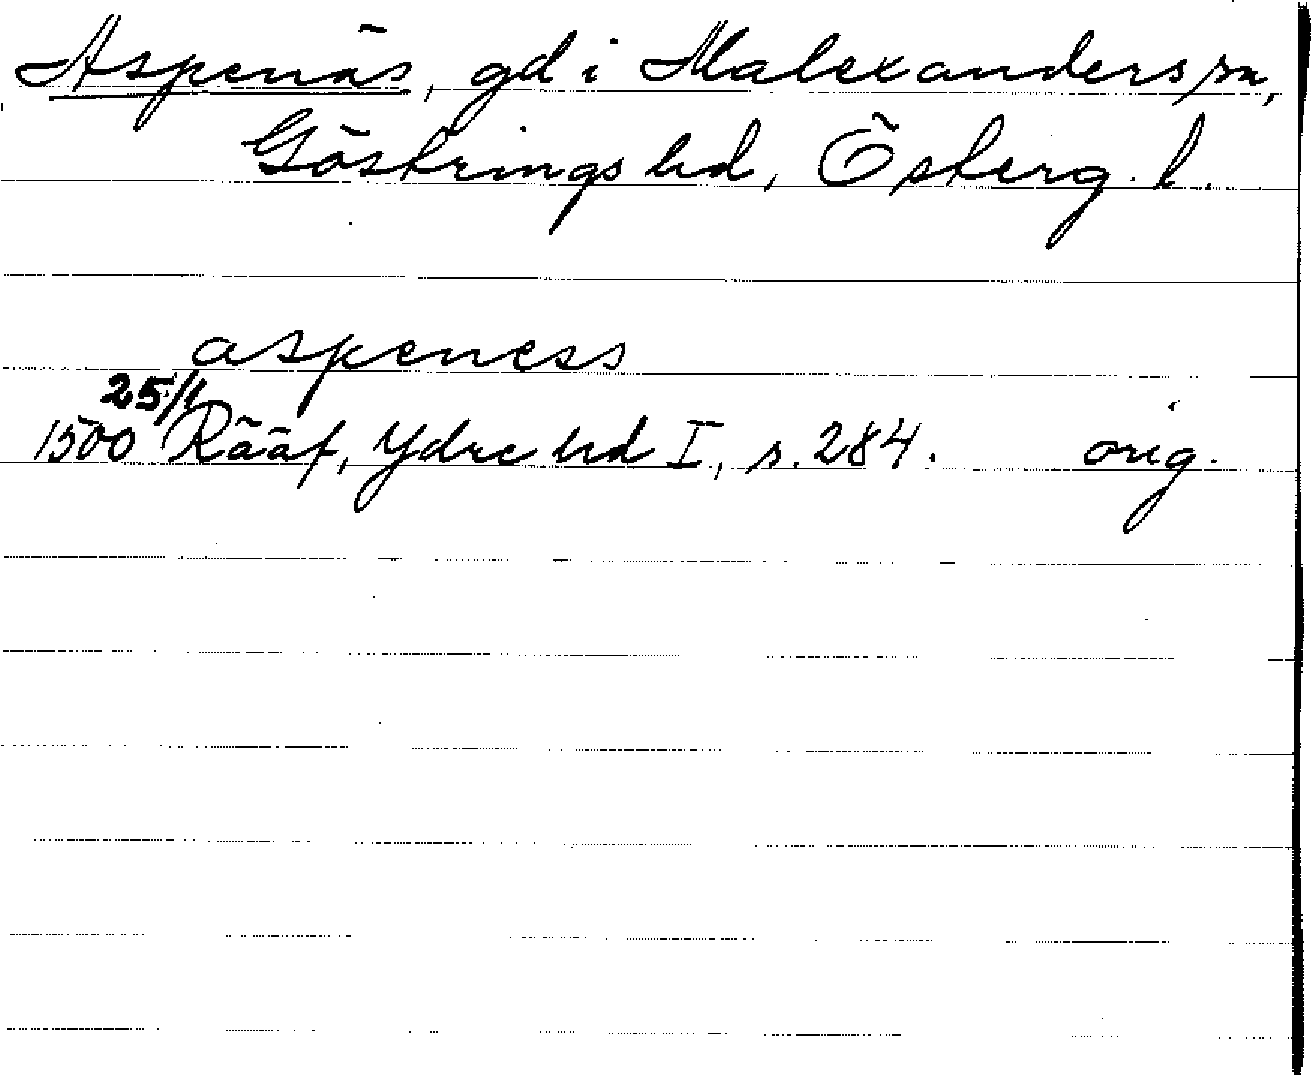 Aspenäs, gd i Malexanders sn,
Göstrings hd, Österg. l.
aspeness
25/1
1500 Rääf, Ydre hd I, s. 284. orig.